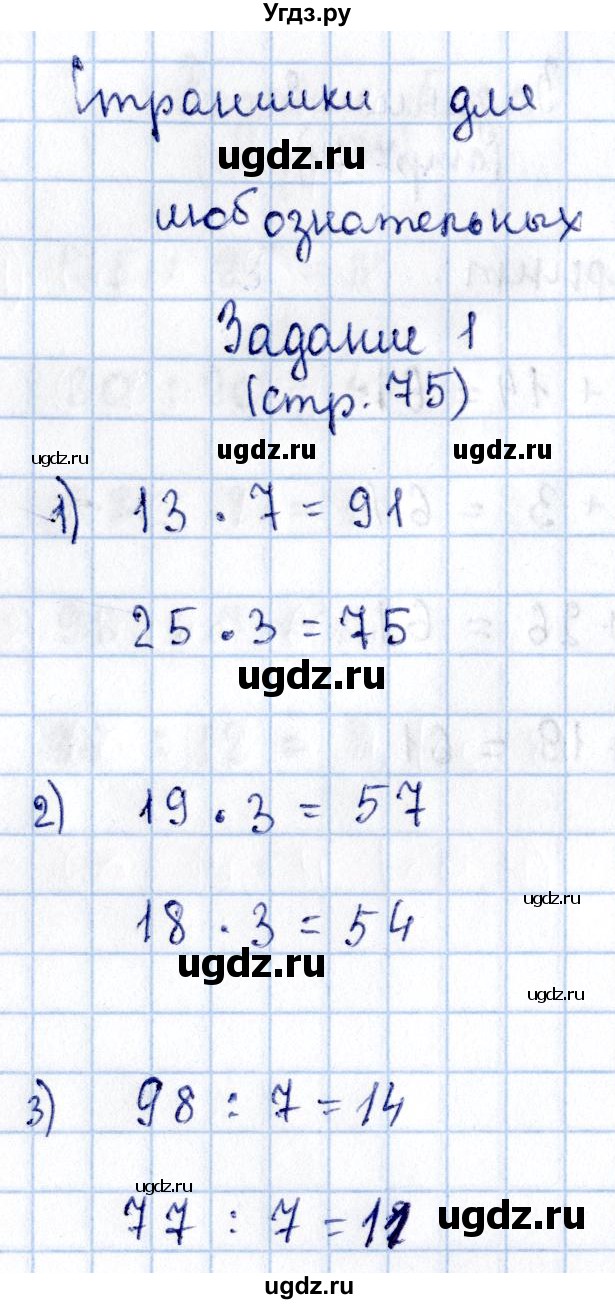 Угдз.ру
Странички для
ugdz.ru
любознательных
Задание 1
(стр. 75)
ugdz.ru ugdz.ru ugdz.ru
1) 13 · 7 = 91
25 · 3 = 75
ugdz.ru
2) 19 · 3 = 57
ugdz.ru
18 · 3 = 54
ugdz.ru
ugdz.ru
3) 98 : 7 = 14
ugdz.ru
77 : 7 = 11
ugdz.ru
ugdz.ru